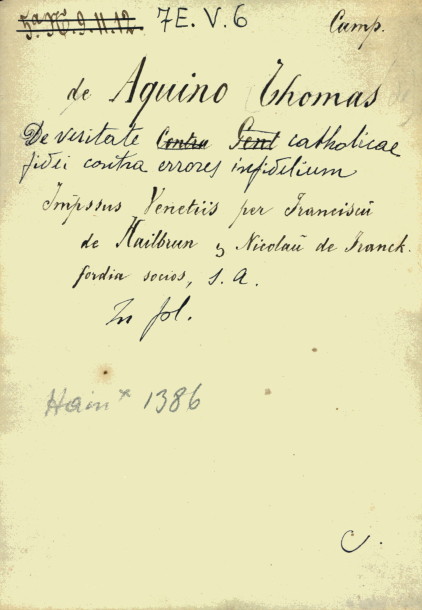 5ª N. 9. 11. 12. 7E. V. 6 Camp.
de Aquino Thomas
De veritate Contra Gent catholicae
fidei contra errores infidelium
Impssus Venetiis per Franciscū
de Hailbrun & Nicolaū de Franck.
fordia socios, S. A.
In fol.
Hain* 1386
C.